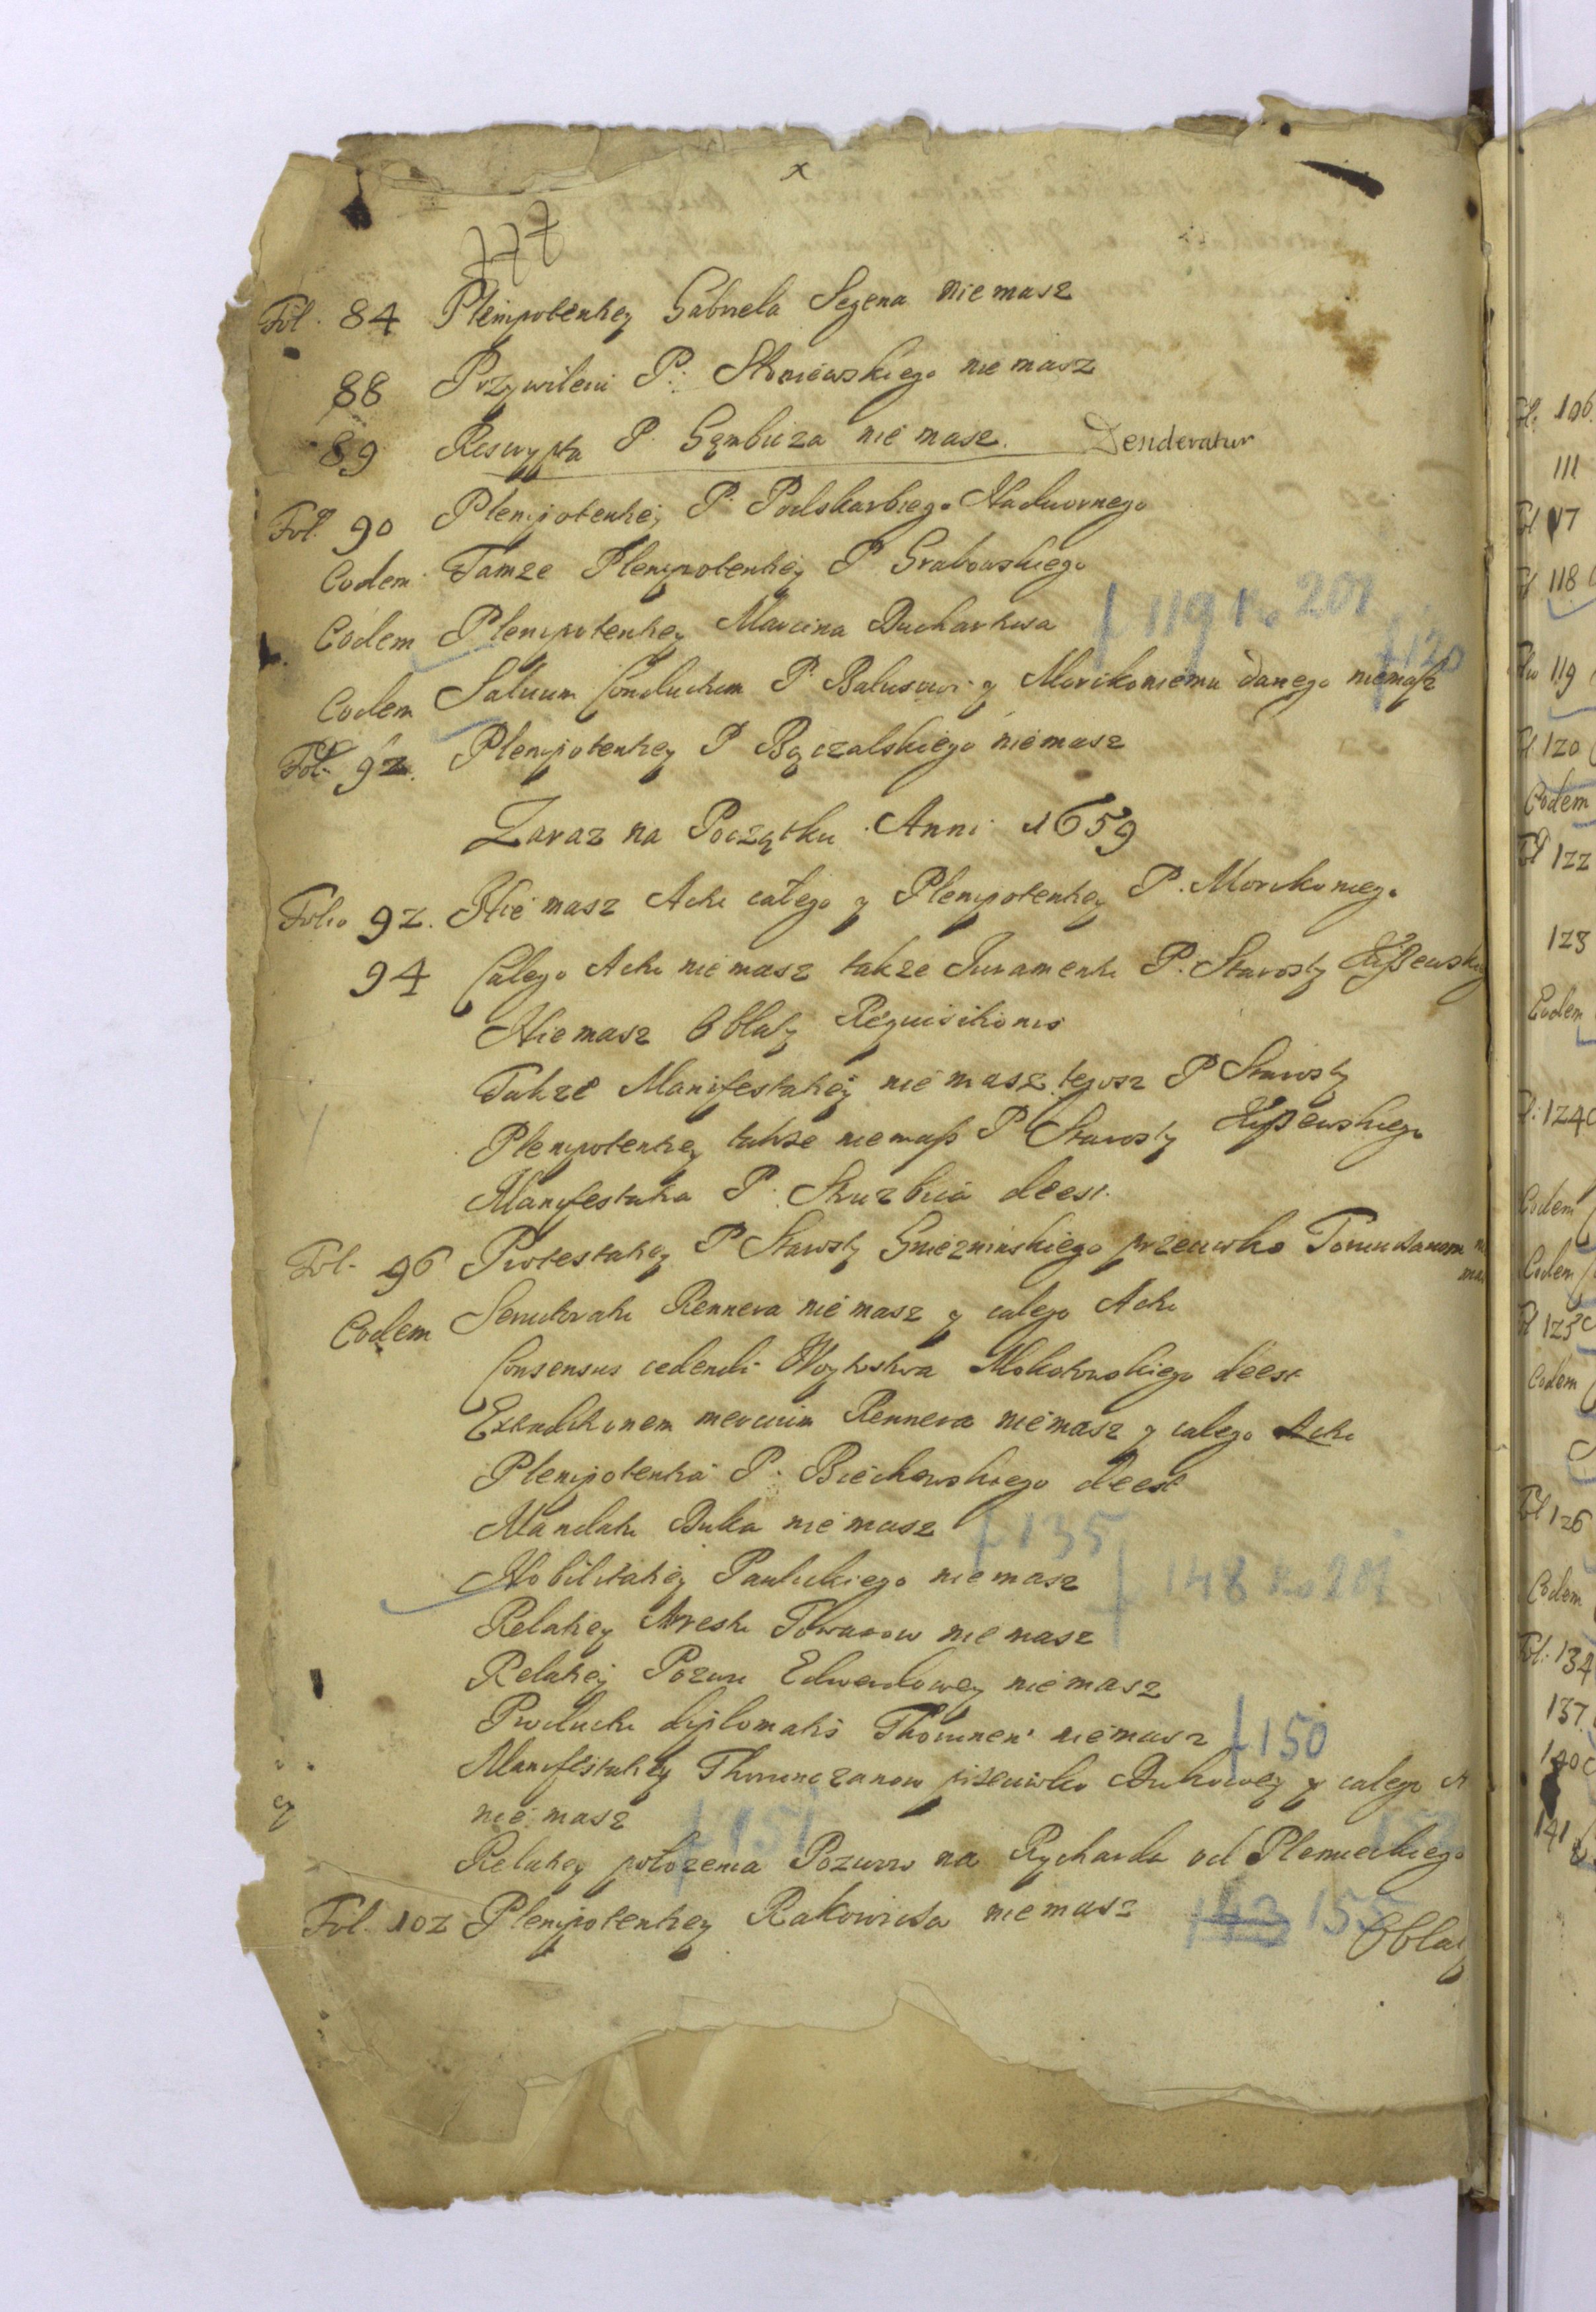 x
Fol. 84 Plenipotentiey Gabriela Segena nie masz
88 Przywileiu P. Słoniewskiego nie masz
89 Rescrypta P. Gębicza nie masz. Desideratur
Fol. 90 Plenipotentiey P. Podskarbiego Nadwornego
Eodem Tamze Plenipotentiey P Grabowskiego
Eodem Plenipotentiey Marcina Buchartusa f 119 No 201
Eodem Salvum Conductum P. Balusowi y Morikoniemu danego niemasz f 120
Fol. 92. Plenipotentiey P Bączalskiego niemasz
Zaraz na Początku Anni 1659
Folio 92. Nie masz Actu całego y Plenipotentiey P. Morikoniego
94 Całego Actu nie masz takze Iuramentu P. Starosty
Niemasz Oblaty Requisitionis
Takze Manifestatiey nie masz tegosz P Starosty
Plenipotentiey takze niemasz P Starosty
Manifestatia P. Skarbka deest.
Fol. 96 Protestatiey P Starosty Gniezninskiego przeciwko
Eodem Servitoratu Rennera nie masz y całego Actu
Consensus cedendi Woytostwa Mokotowskiego deest
mercium Rennera niemasz y całego Actu
Plenipotentia P. Biechowskiego deest
Mandatu Buka nie masz f 135
Nobilitatiey Pauluckiego nie masz f 148 No 201
Relatiey Arestu Towarow nie masz
Relatiey Pozwu Edwardowey niemasz
Productu diplomatis niemasz f 150
Manifestatiey przeciwko Bukowey y całego A
nie masz f 151
Relatiey położenia Pozwow na Rycharda od Plemieckiego
Fol. 102 Plenipotentiey Rakowicza nie masz 143 155
Oblaty
Fol. 106
111
Fol 117
Fol 118
Folio 119
Fol 120
Eodem
Fol 122
123
Eodem
Fol. 124
Eodem
Eodem
Fol 125
Eodem
Fol 126
Eodem
Fol. 134
137
140
141